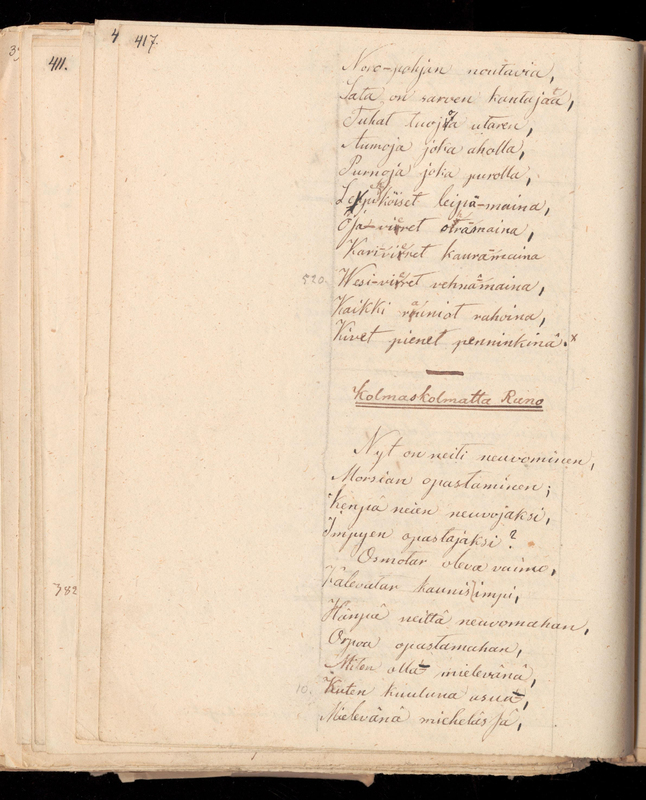 411.
4 417.
Novo-pohjan noutavia,
Sata on sarven kantajaa,
Tuhat tuojoa utaren,
Aumoja joka aholla,
Purnoja joka purolla,
Leppiköiset leipä-maina,
Oja-vieret otramaina,
Karivieret kauramaina
520. Wesi-vieret vehnämaina,
Kaikki rauniot rahoina,
Kivet pienet penninkinä. x
Kolmaskolmatta Runo
Nyt on neiti neuvominen,
Morsian opastaminen;
Kenpä neien neuvojaksi,
Impyen opastajaksi?
Osmotar oleva vaimo,
382 Kalevatar kaunis impi,
Hänpä neittä neuvomahan,
Orpoa opastamahan,
Miten olla mielevänä,
10. Kuten kuuluna asua,
Mielevänä miehelässä,